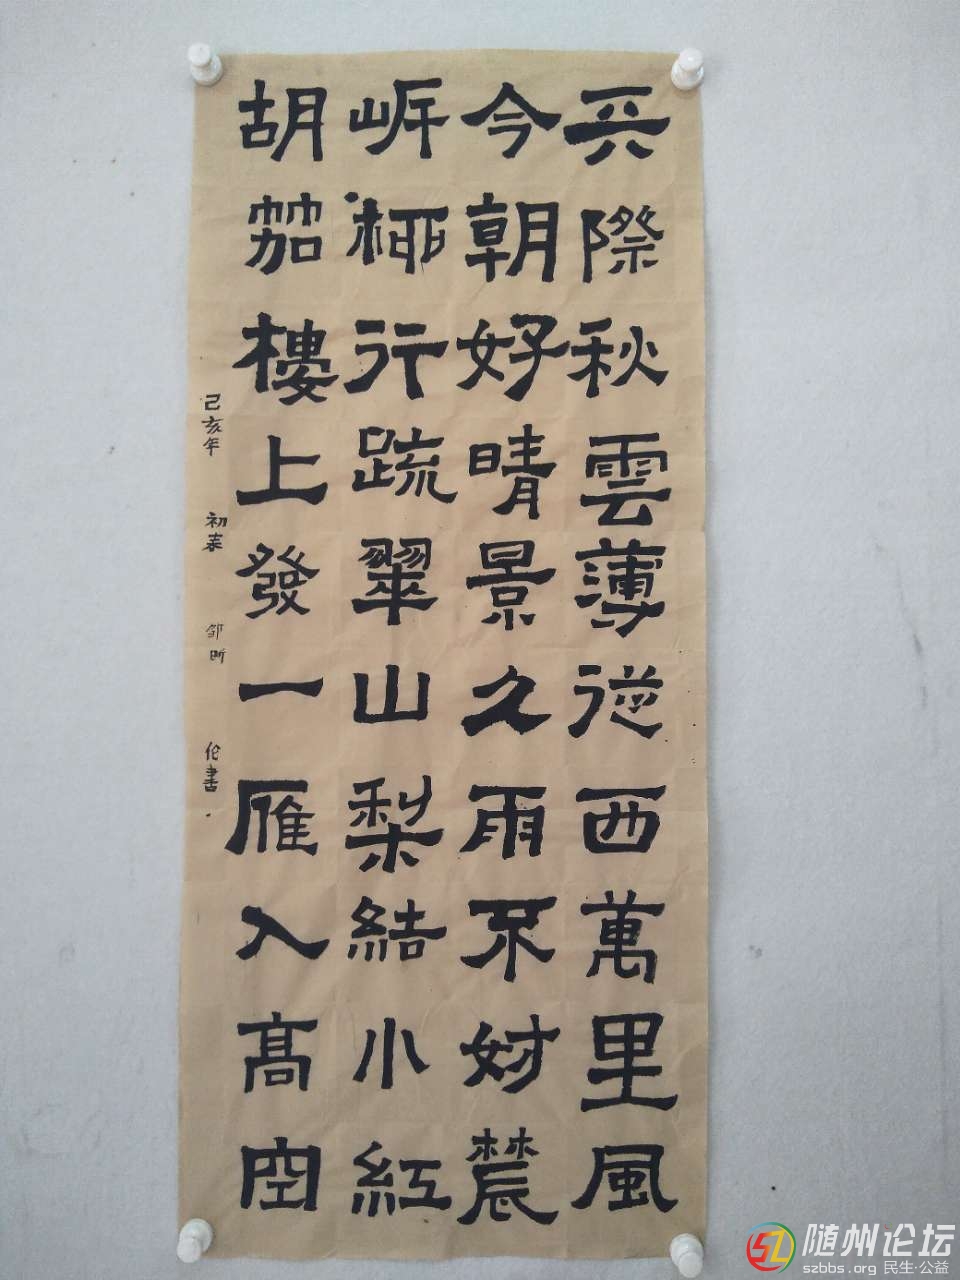 天際秋雲薄從西萬里風
今朝好晴景久雨不妨農
岸柳行疏翠山梨結小紅
胡笳樓上發一雁入高空
己亥年 初春 邹昕 伦書
随州论坛
szbbs.org 民生·公益